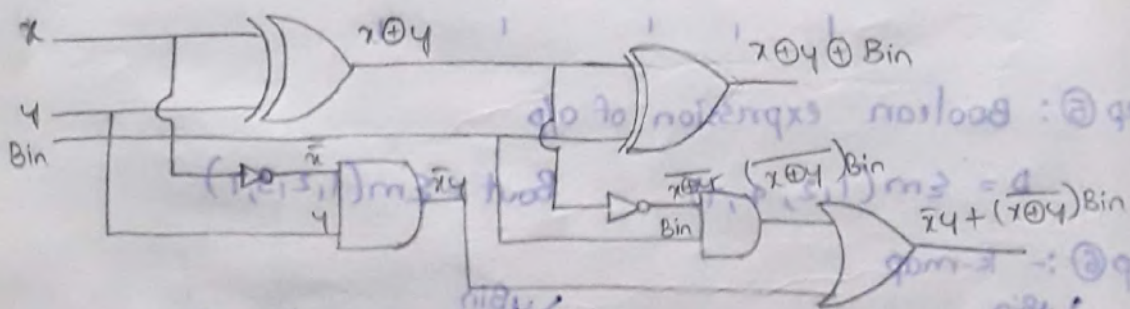 x
x⊕y
x⊕y⊕Bin
y
Bin
x̅
y
x̅y
x̅⊕̅y̅
Bin
(x̅⊕̅y̅)Bin
x̅y+(x̅⊕̅y̅)Bin